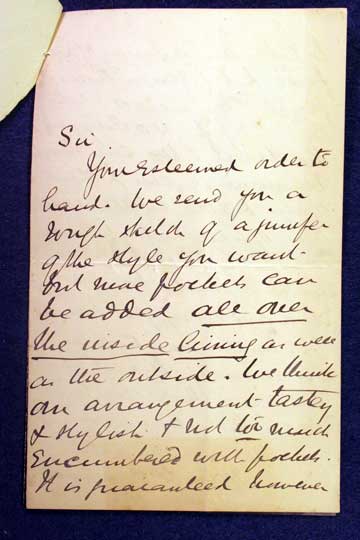 Sir
Your esteemed order to
hand. We send you a
rough sketch of a jumper
of the style you want
but more pockets can
be added all over
the inside lining as well
as the outside. We think
our arrangement tastey
& stylish & not too much
encumbered with pockets.
It is guaranteed however